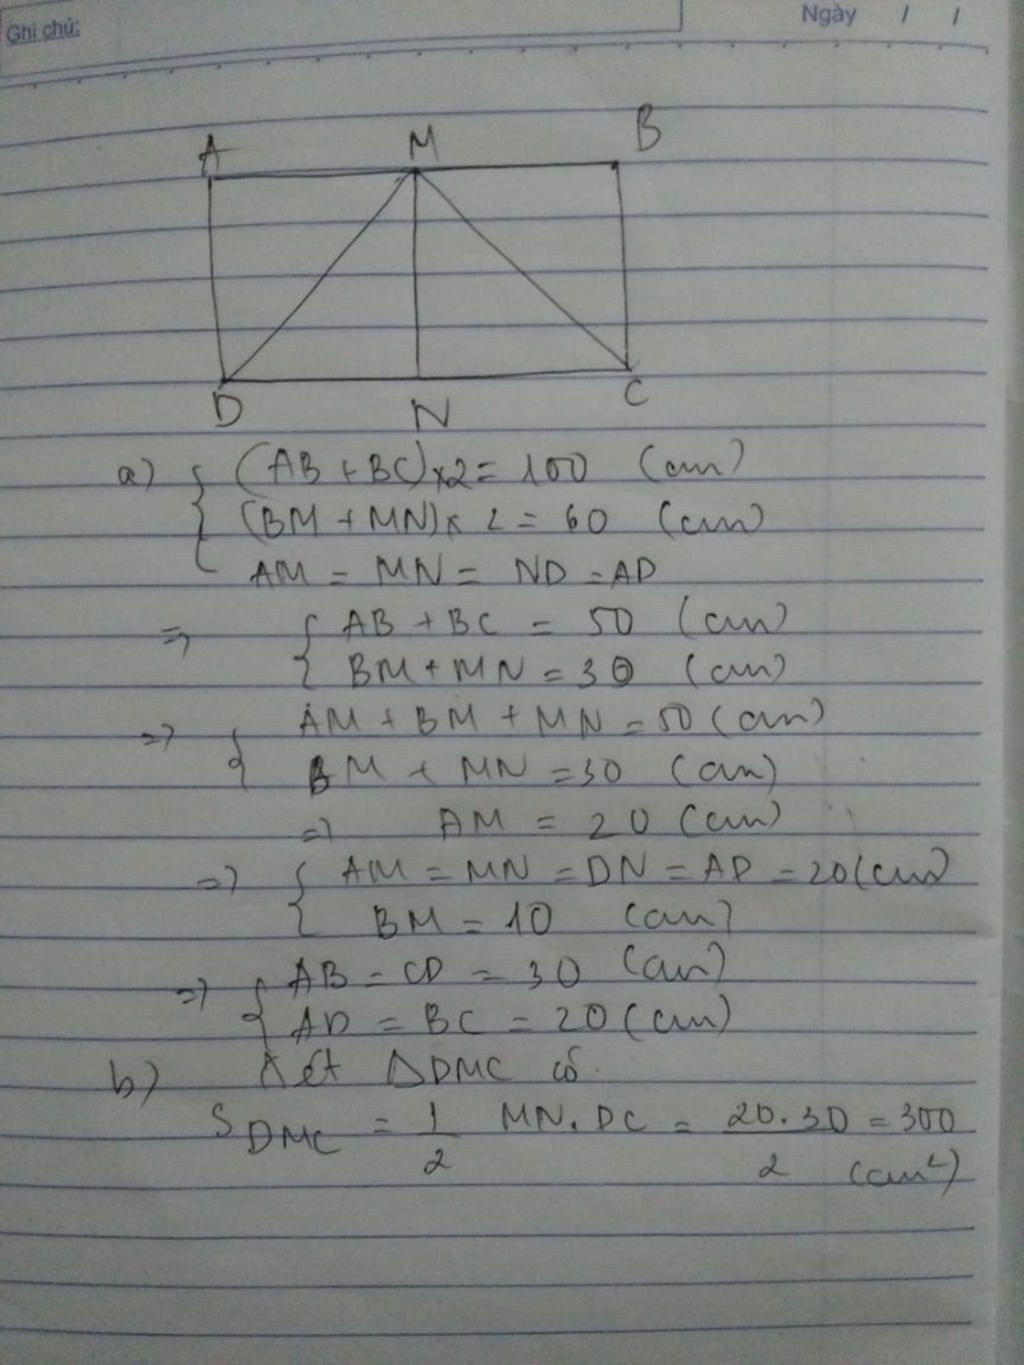 Ghi chú:
Ngày / /
A M B
D N C
a) { (AB + BC) x 2 = 100 (cm)
(BM + MN) x 2 = 60 (cm)
AM = MN = ND = AD
=> { AB + BC = 50 (cm)
BM + MN = 30 (cm)
=> { AM + BM + MN = 50 (cm)
BM + MN = 30 (cm)
=> AM = 20 (cm)
=> { AM = MN = DN = AD = 20 (cm)
BM = 10 (cm)
=> { AB = CD = 30 (cm)
AD = BC = 20 (cm)
b) Xét ΔDMC có.
S_DMC = 1/2 MN. DC = 20.30/2 = 300
(cm²)